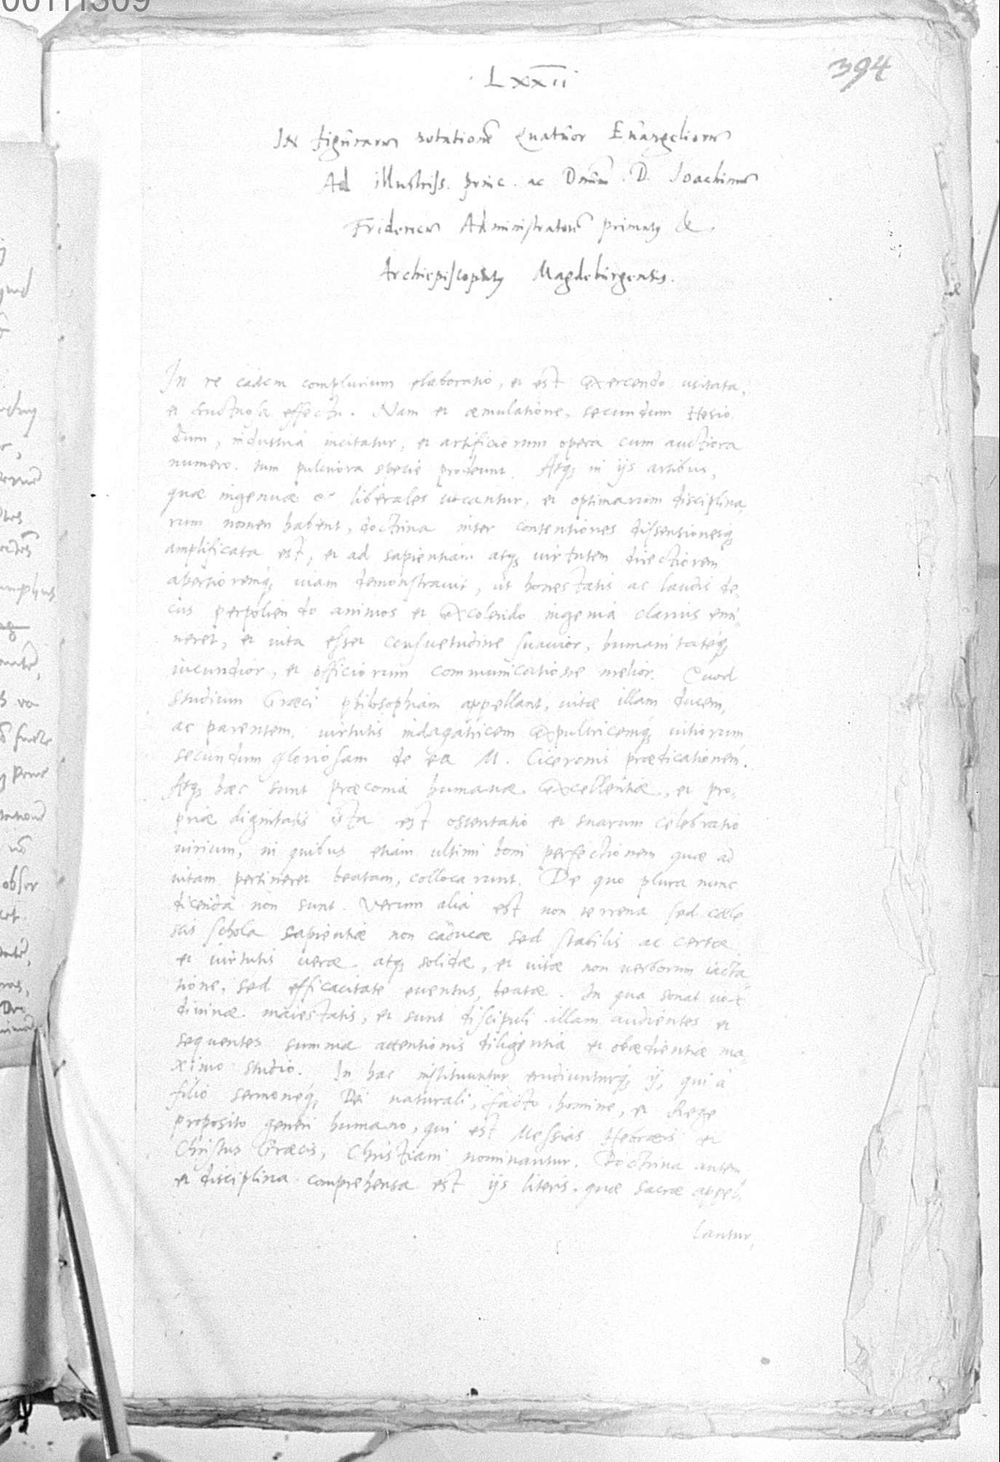 00111309
394
LXXII
In figurarum notationem Quatuor Euangeliorum
Ad illustriss. princ. ac Dnum. D. Joachimum
Fridericum Administratorem primatus &
Archiepiscopatus Magdeburgensis.
In re eadem complurium elaboratio, et est exercendo usitata,
et fructuosa effectu. Nam et æmulatione, secundum Hesio
dum, industria incitatur, et artificiorum opera cum auctiora
numero, tum pulchriora specie prodeunt. Atq, in ijs artibus,
quæ ingenuæ et liberales vocantur, et optimarum disciplina
rum nomen habent, doctrina inter contentiones dissensionesq,
amplificata est, et ad sapientiam atq, virtutem directiorem
apertioremq, viam demonstravit, ut honestatis ac laudis de
cus perpoliendo animos et excolendo ingenia clarius emi
neret, et vita esset consuetudine suavior, humanitateq,
iucundior, et officiorum communicatione melior. Quod
studium Græci philosophiam appellant, vitæ illam ducem,
ac parentem, virtutis indagatricem expultricemq, vitiorum
secundum gloriosam de ea M. Ciceronis prædicationem.
Atq, hæc sunt præconia humanæ excellentiæ, et pro,
priæ dignitatis ista est ostentatio et suarum celebratio
virium, in quibus etiam ultimi boni perfectionem quæ ad
vitam pertineret beatam, collocarunt. De quo plura nunc
dicenda non sunt. Verum alia est non terrena sed cæle
stis schola sapientiæ non caducæ sed stabilis ac certæ,
et virtutis veræ atq, solidæ, et vitæ non verborum iacta
tione, sed efficacitate eventus, beatæ. In qua sonat vox
divinæ maiestatis, et sunt discipuli illam audientes et
sequentes summa attentionis diligentia et obædientiæ ma
ximo studio. In hac instituuntur erudiunturq, ij, qui a
filio sermoneq, Dei naturali, facto homine, et Rege
proposito generi humano, qui est Messias Hebræis et
Christus Græcis, Christiani nominantur. Doctrina autem
et disciplina comprehensa est ijs literis, quæ sacræ appel,
lantur,